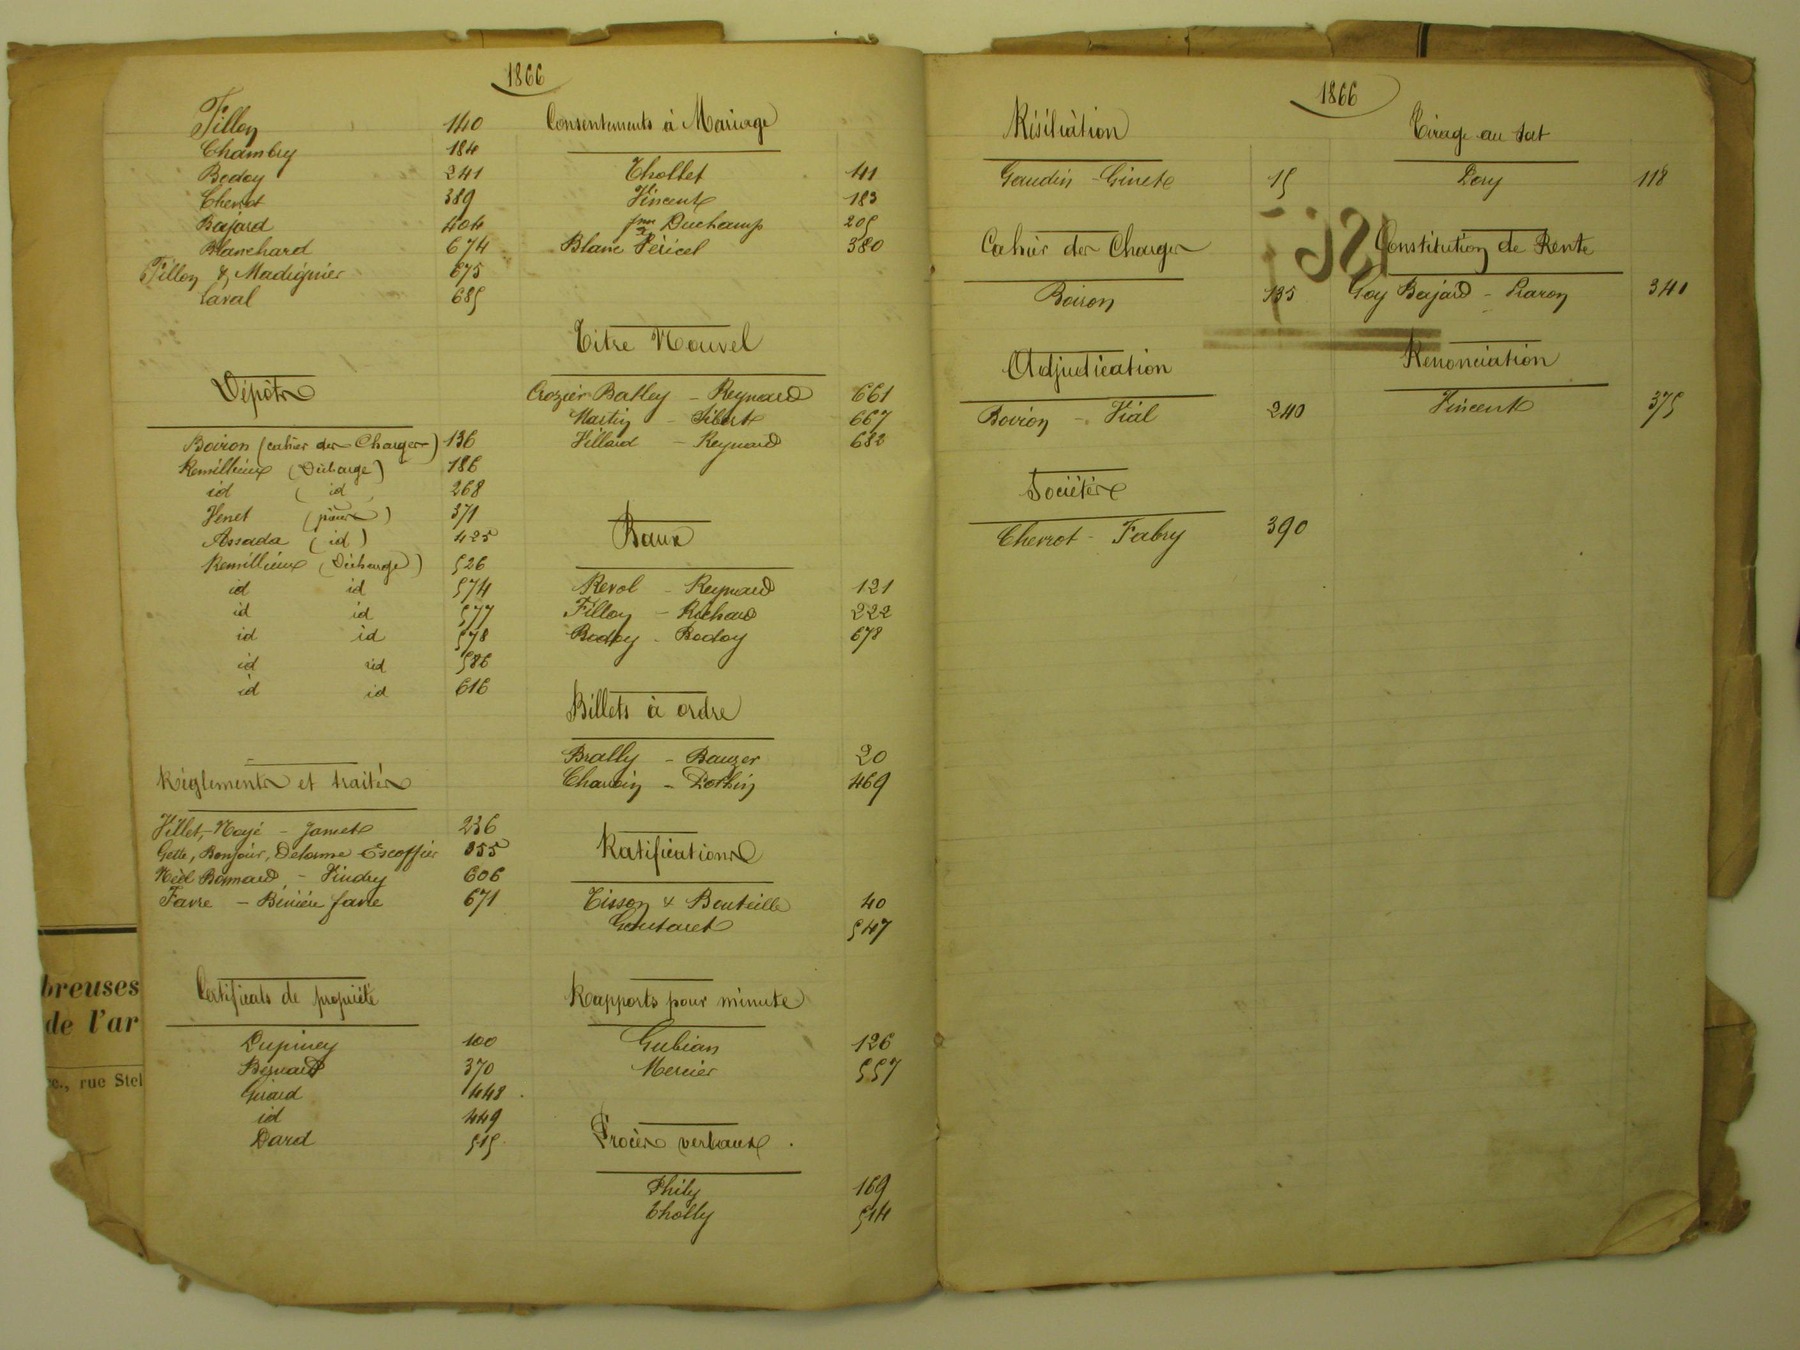 1866
Fillon 140
Chambry 184
Bodoy 241
Cherrot 389
Bajard 404
Blanchard 674
Fillon & Madignier 675
Laval 685
Dépôts
Boiron (cahier des Charges) 136
Remillieux (Décharge) 186
id ( id ) 268
Venet (pièces) 371
Assada ( id ) 425
Remillieux (Décharge) 526
id id 574
id id 577
id id 578
id id 586
id id 616
Règlements et traités
Villet, Noyé - Jamet 236
Gette, Bonjour, Delorme Escoffier 355
Néel Bonnard, - Vindry 606
Favre - Favre 671
Certificats de propriété
Dupiney 100
Bernard 370
Girard 448
id 449
Dard 515
Consentements à Mariage
Thollet 141
Vincent 183
Duchamp 205
Blanc Péricel 380
Titre Nouvel
Crozier Balley - Reynard 661
Martin - Sibert 667
Villard - Reynard 682
Baux
Revol - Reynard 121
Fillon - Richard 222
Bodoy - Bodoy 678
Billets à ordre
Brally - Bauzer 20
Charvin - 469
Ratifications
Tisson & Bouteille 40
Goutaret 547
Rapports pour minute
Gubian 126
Mercier 557
Procès verbaux
Phily 169
Tholly 514
breuses
de l'ar
ce., rue Stel
1866
Résiliation
Gaudin - Ginet 15
Cahier des Charges
Boiron 135
Adjudication
Boiron - Vial 240
Sociétés
Cherrot - Fabry 390
Tirage au sort
Dory 118
Constitution de Rente
Goy Bajard - Laron 340
Renonciation
Vincent 375